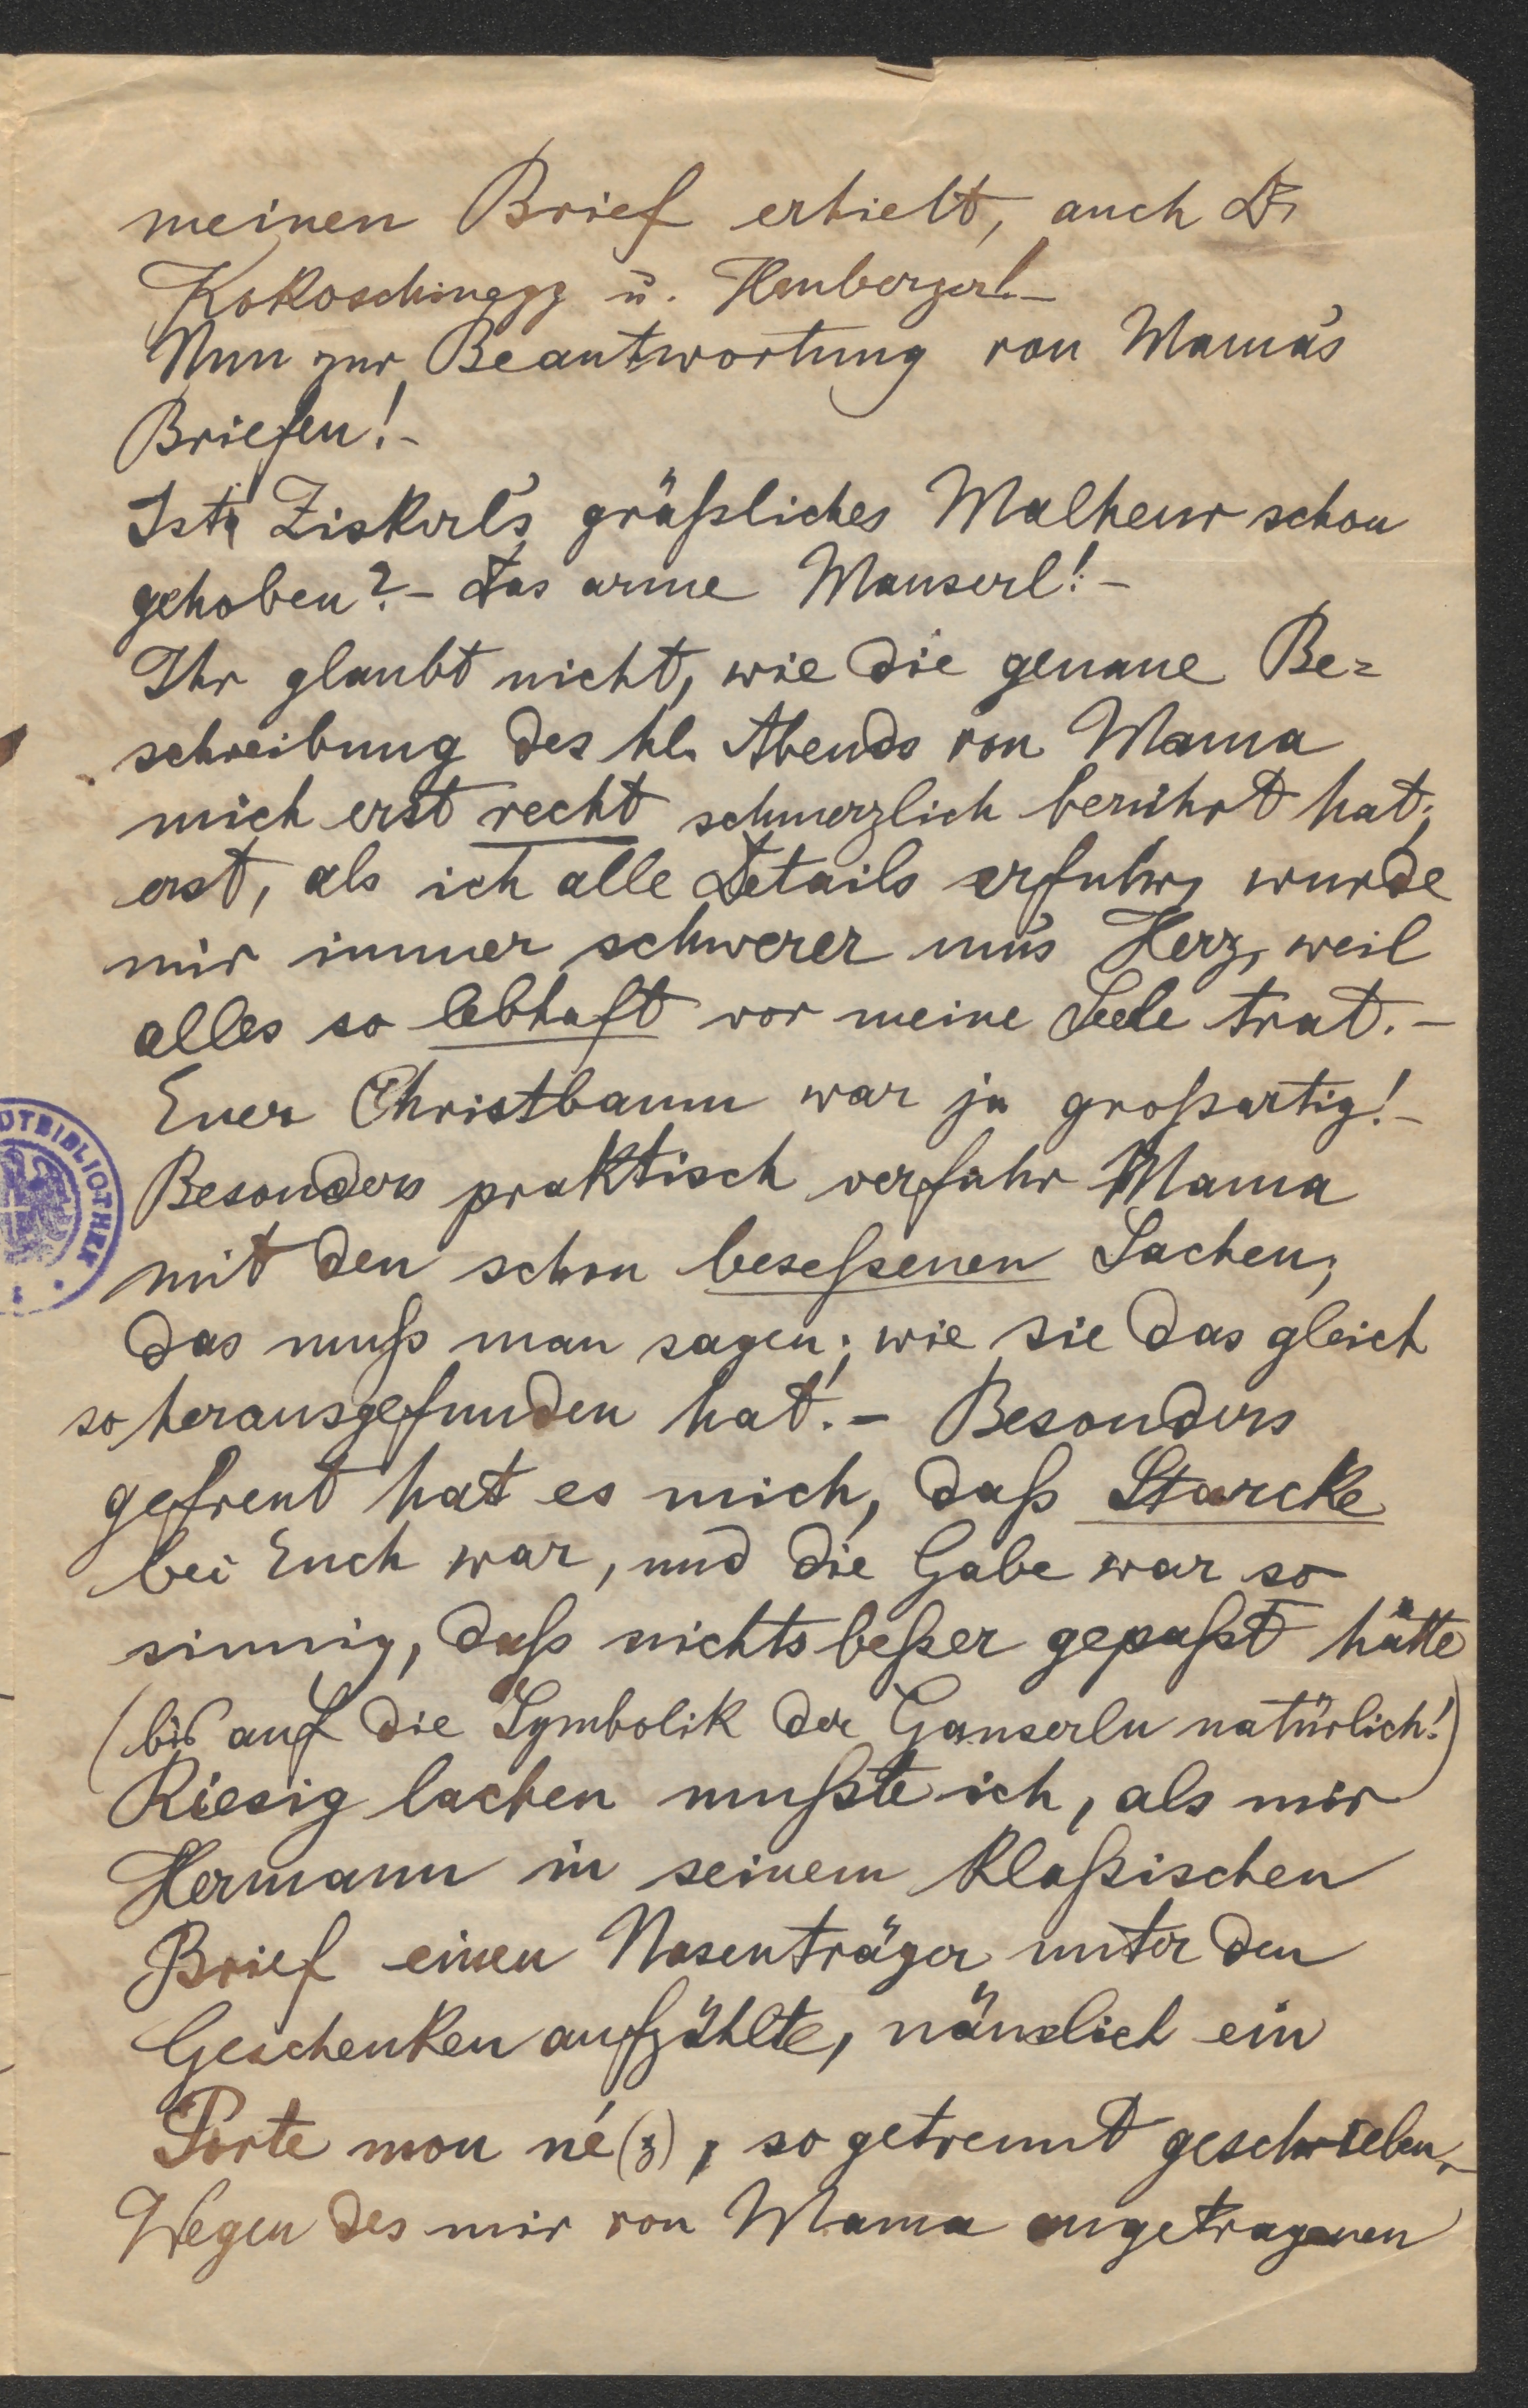 meinen Brief erhielt, auch Dr.
Kokoschinegg u. Heuberger!–
Nun zur Beantwortung von Mama's
Briefen!–
Ist Ziskerl's gräßsliches Malheur schon
gehoben?– Das arme Mauserl!–
Ihr glaubt nicht, wie die genaue Be=
schreibung des hl. Abends von Mama
mich erst recht schmerzlich berührt hat;
erst, als ich alle Details erfuhr, wurde
mir immer schwerer um's Herz, weil
alles so lebhaft vor meine Seele trat.–
Euer Christbaum war ja großartig!–
Besonders praktisch verfuhr Mama
mit den schon beseßenen Sachen;
das muß man sagen; wie sie das gleich
so herausgefunden hat!– Besonders
gefreut hat es mich, daß Starcke
bei Euch war, und die Gabe war so
sinnig, daß nichts beßer gepaßt hätte
(bis auf die Symbolik der Ganserln natürlich!)
Riesig lachen mußte ich, als mir
Hermann in seinem klaßischen
Brief einen Nasenträger unter den
Geschenken aufzählte, nämlich ein
Porte mon né(z), so getrennt geschrieben.–
Wegen des mir von Mama angetragenen
DTBIBLIOTHEK